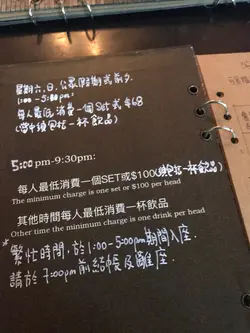 星期六、日、公眾假期或前夕
1:00 - 5:00pm:
每人最低消費一個Set或$68
(當中須包括一杯飲品)
5:00pm-9:30pm:
每人最低消費一個SET或$100(須包括一杯飲品)
The minimum charge is one set or $100 per head
其他時間每人最低消費一杯飲品
Other time the minimum charge is one drink per head
*繁忙時間,於1:00-5:00pm期間入座,
請於7:00pm前結帳及離座.